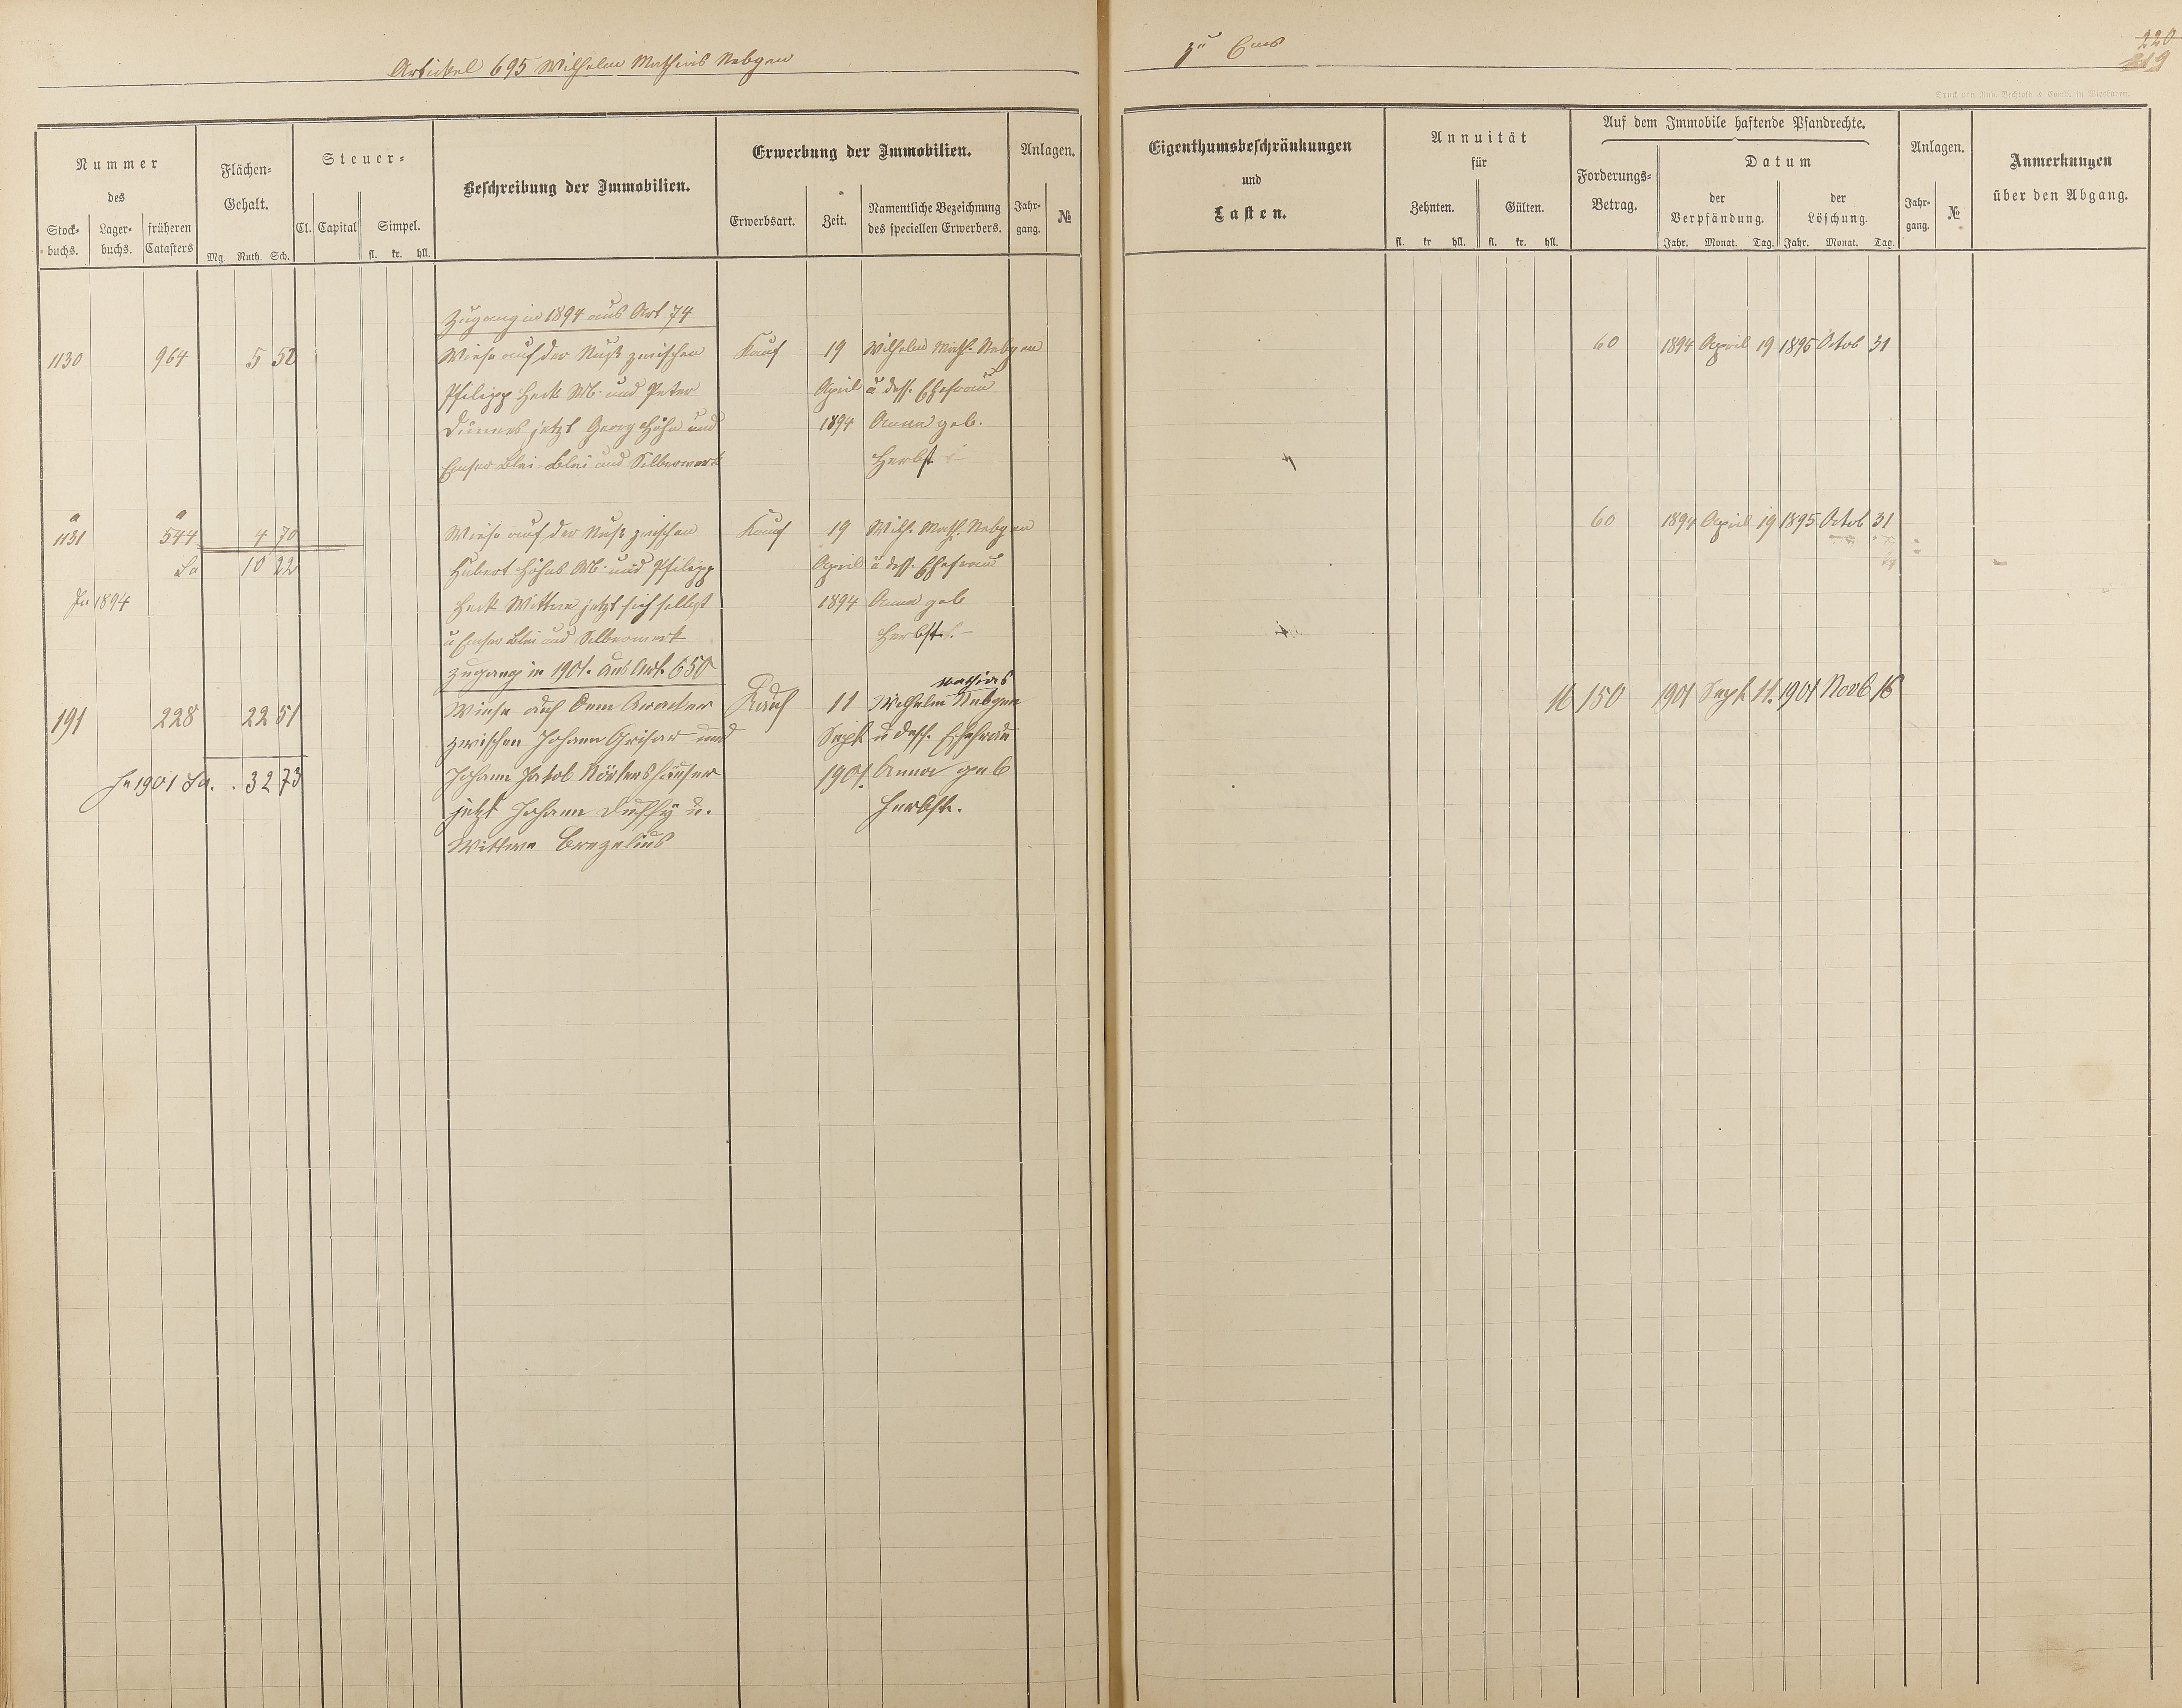 Artikel 695 Wilhelm Mathias Nebgen
zu Ems
220
219
Druck von Rud. Bechtold & Comp. in Wiesbaden.
Nummer
des
Stock-
buchs.
Lager-
buchs.
früheren
Catasters
Flächen-
Gehalt.
Mg. Ruth. Sch.
Steuer-
Cl. Capital
Simpel.
fl. kr. hll.
Beschreibung der Immobilien.
Erwerbung der Immobilien.
Erwerbsart.
Zeit.
Namentliche Bezeichnung
des speciellen Erwerbers.
Anlagen.
Jahr-
gang.
№
Eigenthumsbeschränkungen
und
Lasten.
Annuität
für
Zehnten.
Gülten.
fl. kr hll. fl. kr. hll.
Auf dem Immobile haftende Pfandrechte.
Forderungs-
Betrag.
Datum
der
Verpfändung.
der
Löschung.
Jahr. Monat. Tag. Jahr. Monat. Tag.
Anlagen.
Jahr-
gang.
№
Anmerkungen
über den Abgang.
Zugang in 1894 aus Art 74
1130 964 5 52 Wiese auf der Nuß zwischen Kauf 19 Wilhelm Math. Nebgen 60 1894 April 19 1895 Octob 31
Philipp Heck Wb. und Peter April u dess. Ehefrau
jetzt Georg Höhn und 1894 Anna geb.
Emser Blei Blei und Silberwerk Herbst
a a
1131 544 4 70 Wiese auf der Nuß zwischen Kauf 19 Wilh. Math. Nebgen 60 1894 April 19 1895 Octob 31
Sa 10 22 Hubert Höhns Wb. und Philipp April u dess. Ehefrau
In 1894 Heck Wittwe jetzt sich selbst 1894 Anna geb
u Emser Blei und Silberwerk Herbst.
Zugang in 1901. aus Art. 650
Mathias
191 228 22 51 Wiese auf dem Kauf 11 Wilhelm Nebgen 16 150 1901 Sept 11. 1901 Novb 16
zwischen Johann Grisar und Sept u dess. Ehefrau
In 1901 Sa. 32 73 Johann Jakob Nörtershäuser 1901. Anna geb
jetzt Johann u. Herbst.
Wittwe